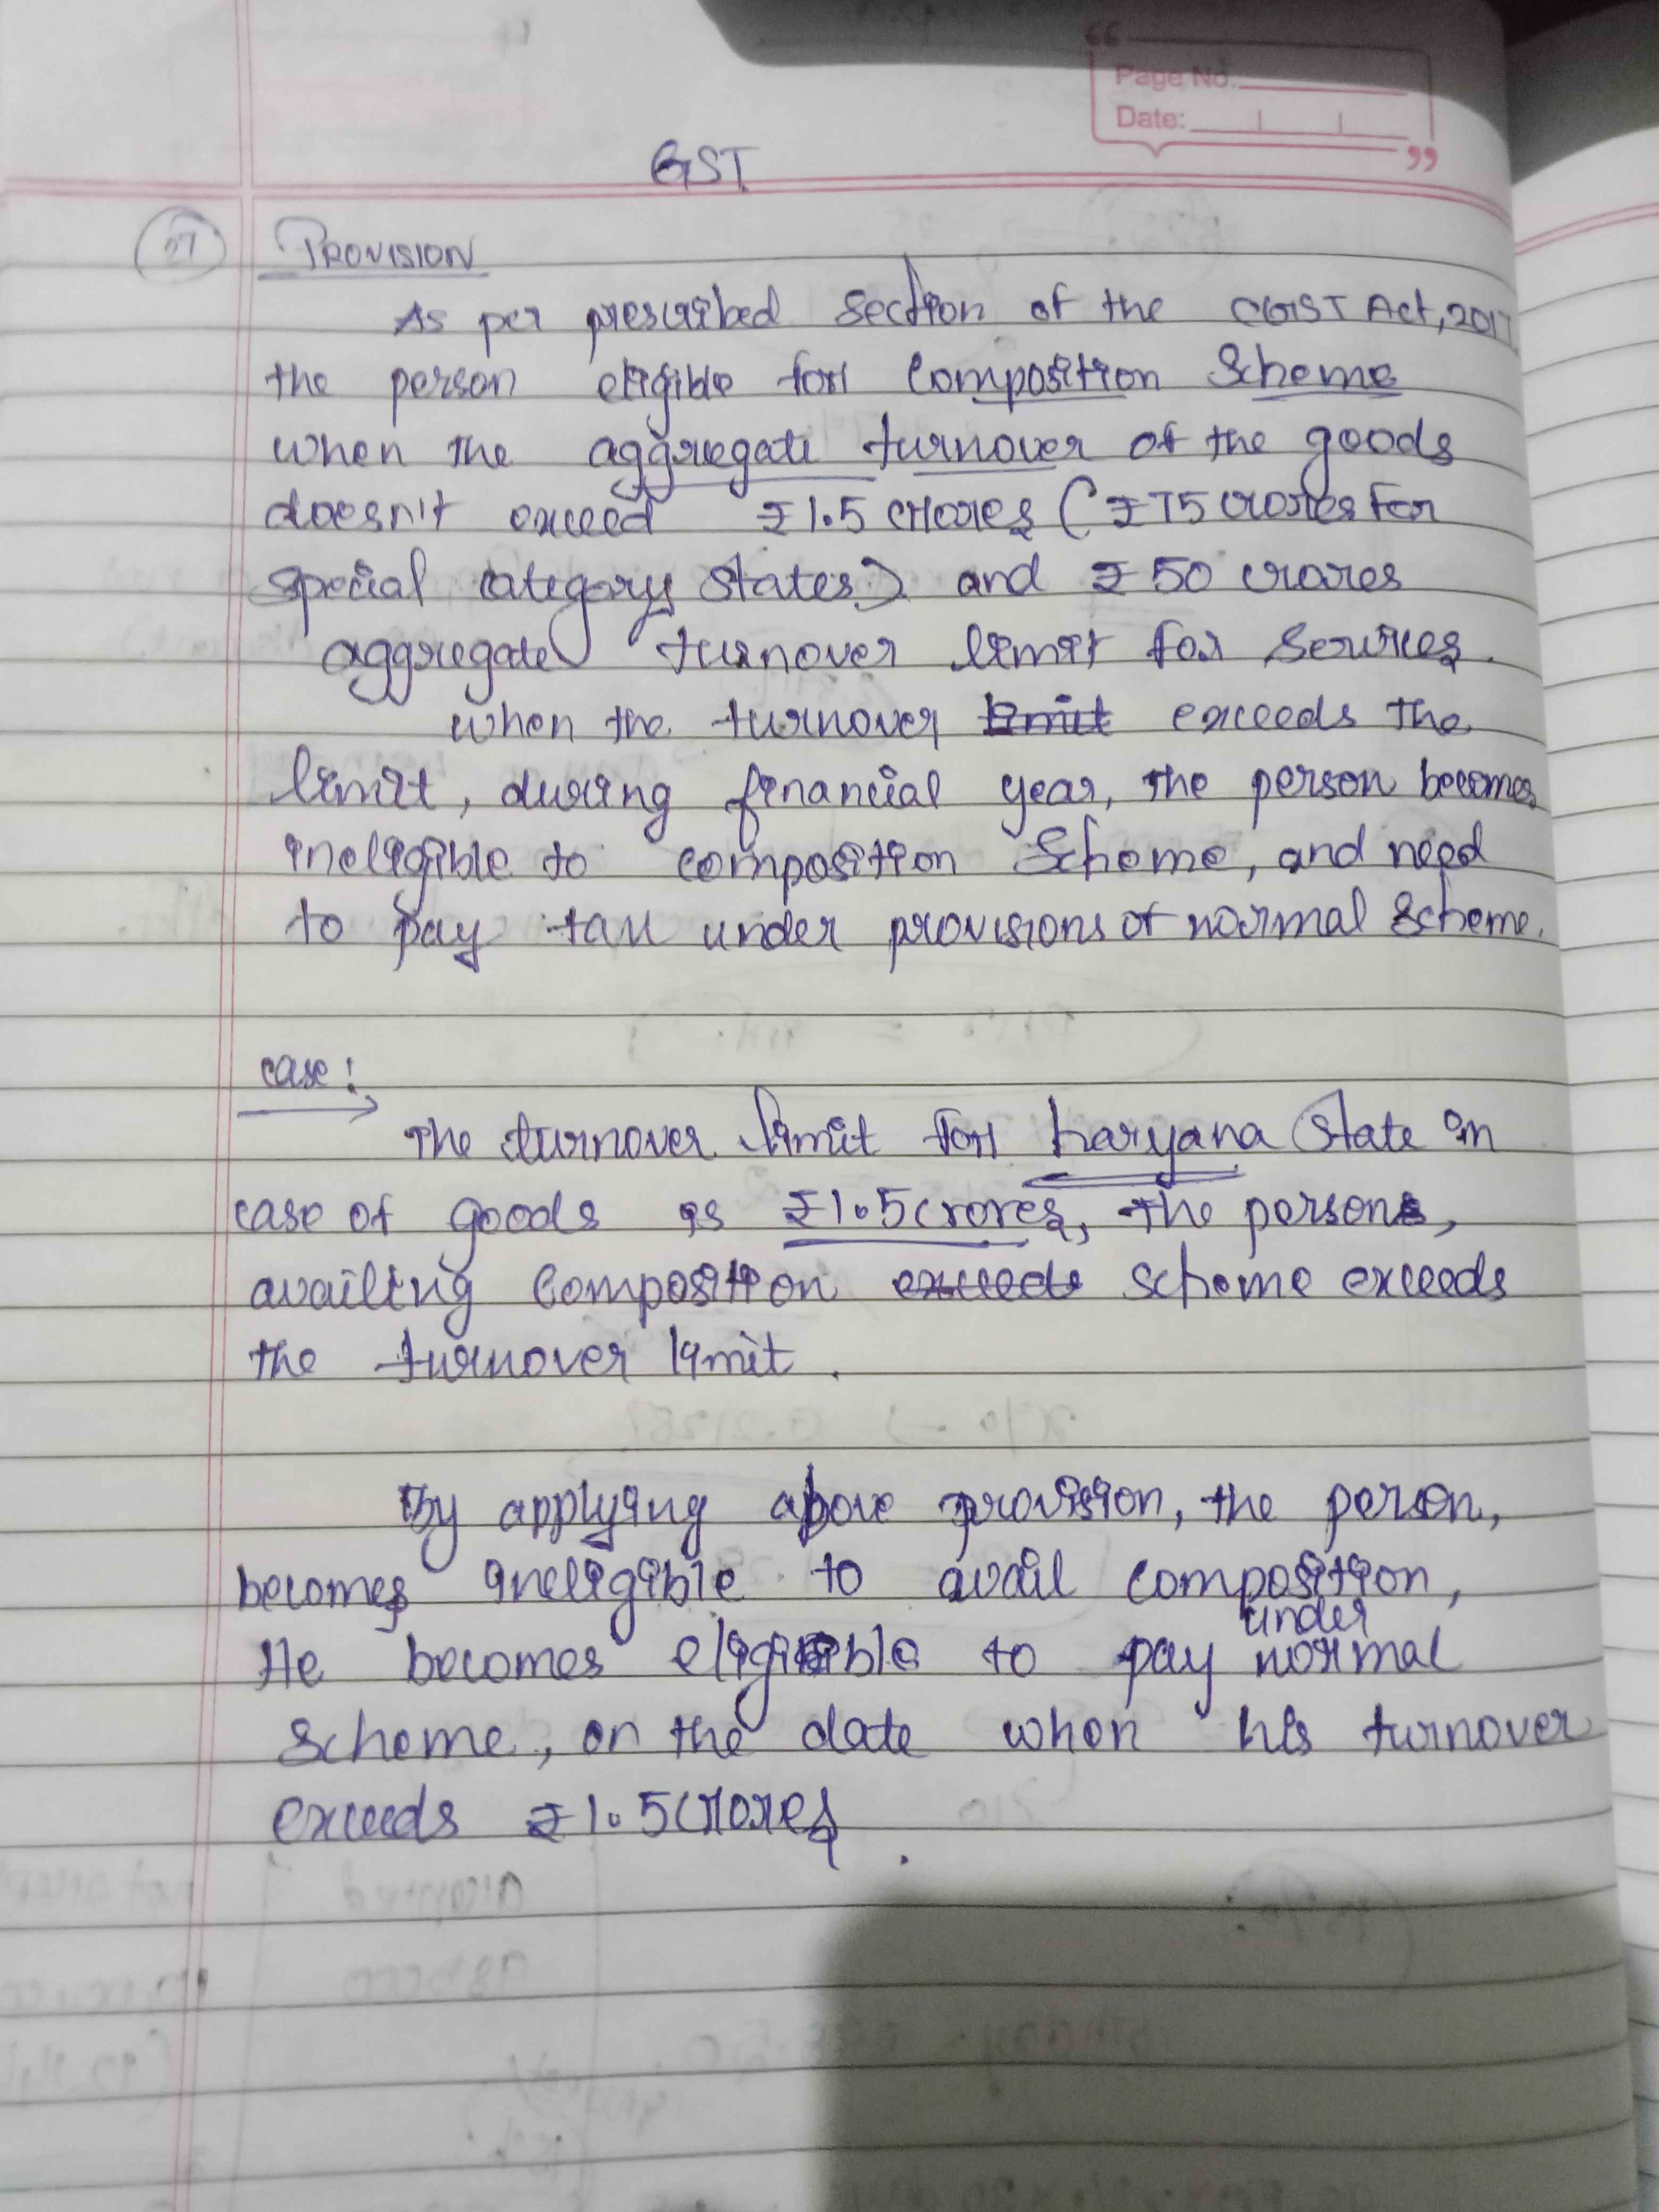 Page No.
Date:
GST
27 PROVISION
As per prescribed section of the CGST Act, 2017
the person eligible for Composition Scheme
when the aggregate turnover of the goods
doesn't exceed ₹1.5 crores (₹75 crores for
special category states) and ₹50 crores
aggregate turnover limit for services.
when the turnover limit exceeds the
limit, during financial year, the person becomes
ineligible to composition Scheme, and need
to pay tax under provisions of normal scheme.
case:
The turnover limit for haryana state in
case of goods is ₹1.5 crores, the person,
availing composition exceeds scheme exceeds
the turnover limit.
By applying above provision, the person,
becomes ineligible to avail composition,
under
He becomes eligible to pay normal
scheme, on the date when his turnover
exceeds ₹1.5 crores.